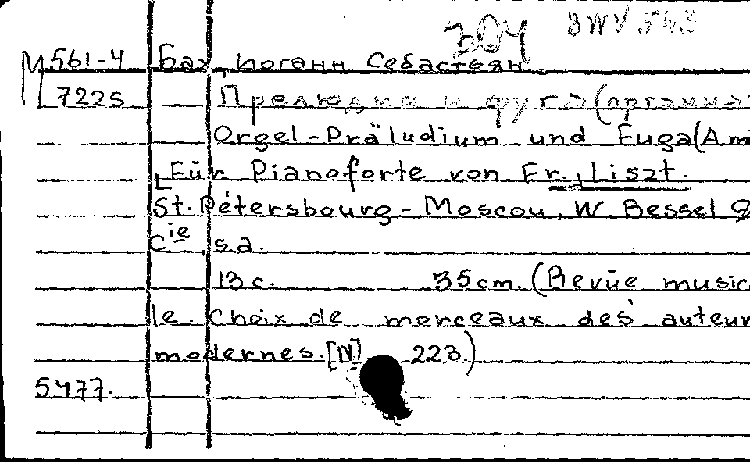 304 BWV 543
М 561-4 Бах, Иоганн Себастьян
7225 Прелюдия и фуга (органная
Orgel-Präludium und Fuga (A m
Für Pianoforte von Fr. Liszt.
St. Pétersbourg - Moscou, W. Bessel &
Cie, s.a.
13 c. 35 cm. (Revüe music
le. Choix de morceaux des auteur
modernes. [N] 223.)
5477.